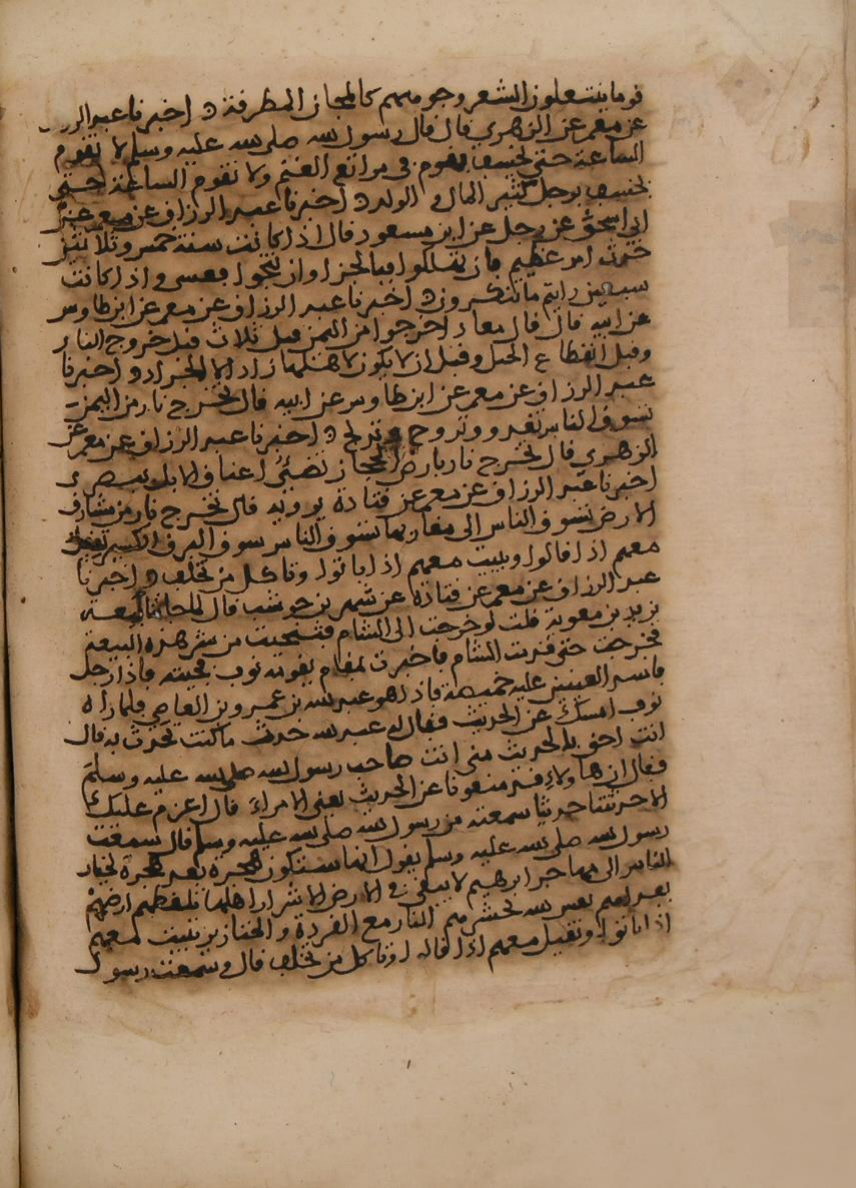 قوما ينتعلون الشعر وجوههم كالمجان المطرقة ه اخبرنا عبد الرز
عن معمر عن الزهري قال قال رسول الله صلى الله عليه وسلم لا تقوم
الساعة حتى يخسف بقوم في مراتع الغنم ولا تقوم الساعة حتى
يخسف برجل كثير المال و الولد ه اخبرنا عبد الرزاق عن معمر عن
ابي اسحق عن رجل عن ابن مسعود قال اذا كانت سنة خمس وثلاثين
حدث امر عظيم فان تهلكوا فبالحرا وان تنجوا فعسى واذا كانت
سبعين رايتم ما تنكرون ه اخبرنا عبد الرزاق عن معمر عن ابن طاوس
عن ابيه قال قال معاذ اخرجوا من اليمن قبل ثلاث قبل خروج النار
وقبل انقطاع الحبل وقبل ان لا يكون لاهلها زاد الا الجراد و اخبرنا
عبد الرزاق عن معمر عن ابن طاوس عن ابيه قال تخرج نار من اليمن
تسوق الناس تغدو وتروح وتدلج ه اخبرنا عبد الرزاق عن معمر عن
الزهري قال تخرج نار بارض الحجاز تضئ اعناق الابل ببصرى
اخبرنا عبد الرزاق عن معمر عن قتادة يرويه قال تخرج نار من مشارق
الارض تسوق الناس الى مغاربها تسوق الناس سوق البرق الكسير تقيل
معهم اذا قالوا وتبيت معهم اذا باتوا وتاكل من تخلف و اخبرنا
عبد الرزاق عن معمر عن قتادة عن شهر بن حوشب قال لما جاءتنا بيعة
يزيد بن معوية قلت لو خرجت الى الشام فتنحيت من شر هذه البيعة
فخرجت حتى قدمت الشام فاخبرت بمقام يقومه نوف فجئته فاذا رجل
فاسد العينين عليه خميصة فاذا هو عبد الله بن عمرو بن العاصي فلما راه
نوف امسك عن الحديث فقال له عبد الله حدث ما كنت تحدث به قال
انت احق بالحديث مني انت صاحب رسول الله صلى الله عليه وسلم
فقال ان هاولاء قد منعونا عن الحديث يعني الامراء قال اعزم عليك
الا حدثتنا حديثا سمعته من رسول الله صلى الله عليه وسلم قال سمعت
رسول الله صلى الله عليه وسلم يقول انها ستكون هجرة بعد هجرة لخيار
الناس الى مهاجر ابرهيم لا يبقى في الارض الا شرار اهلها تلفظهم ارضهم
تحشرهم النار مع القردة والخنازير تبيت معهم
اذا باتوا وتقيل معهم اذا قالوا وتاكل من تخلف قال وسمعت رسول